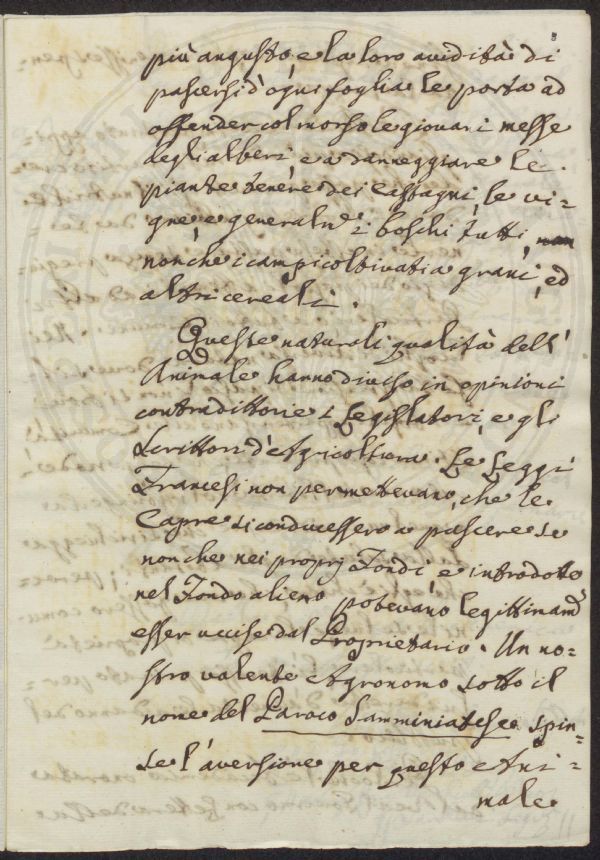 più angusto, e la loro avidità di
pascersi d'ogni foglia le porta ad
offender col morso le giovani messe
degli alberi, e a danneggiare le
piante tenere dei Castagni, le vi=
gne, e generalm.e i boschi tutti,
nonchè i campi coltivati a grani, ed
altri cereali.
Queste naturali qualità dell'
Animale hanno diviso in opinioni
contradittorie i Legislatori, e gli
Scrittori d'Agricoltura. Le Leggi
Francesi non permettevano, che le
Capre si conducessero a pascere se
non che nei proprj Fondi, e introdotte
nel Fondo alieno potevano legittimam.e
esser uccise dal Proprietario. Un no=
stro valente Agronomo sotto il
nome del Paroco Samminiatese spin=
se l'aversione per questo Ani=
male